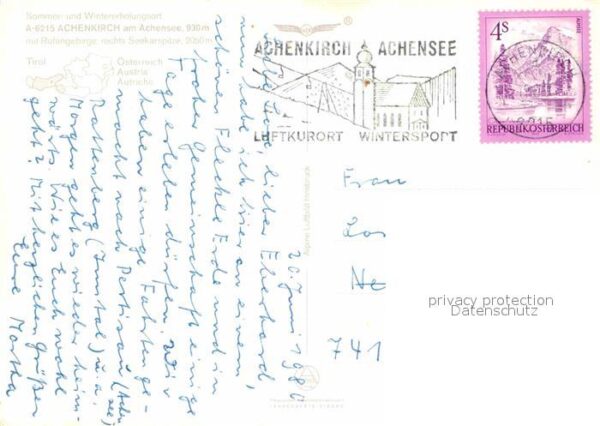 Sommer- und Wintererholungsort
A-6215 ACHENKIRCH am Achensee, 930 m
mit Rofangebirge, rechts Seekarspitze, 2050 m
Tirol
Österreich
Austria
Autriche
ACHENKIRCH ACHENSEE
LUFTKURORT WINTERSPORT
4S
REPUBLIK ÖSTERREICH
ACHENKIRCH
6215
Alpine Luftbild Innsbruck
20. Juni 1980
lieber Eberhard,
nun habe ich hier an einem
schönen Fleckle Erde und in
froher Gemeinschaft einige
Tage erleben dürfen. Wir
haben einige Fahrten ge-
macht nach Pertisau (Achen
see)
Rattenberg (Inntal) u. a.
Morgen geht es wieder heim-
wärts. Wie es Euch wohl
geht? Mit herzlichen Grüßen
Eure Martha
Frau
Ne
741
privacy protection
Datenschutz